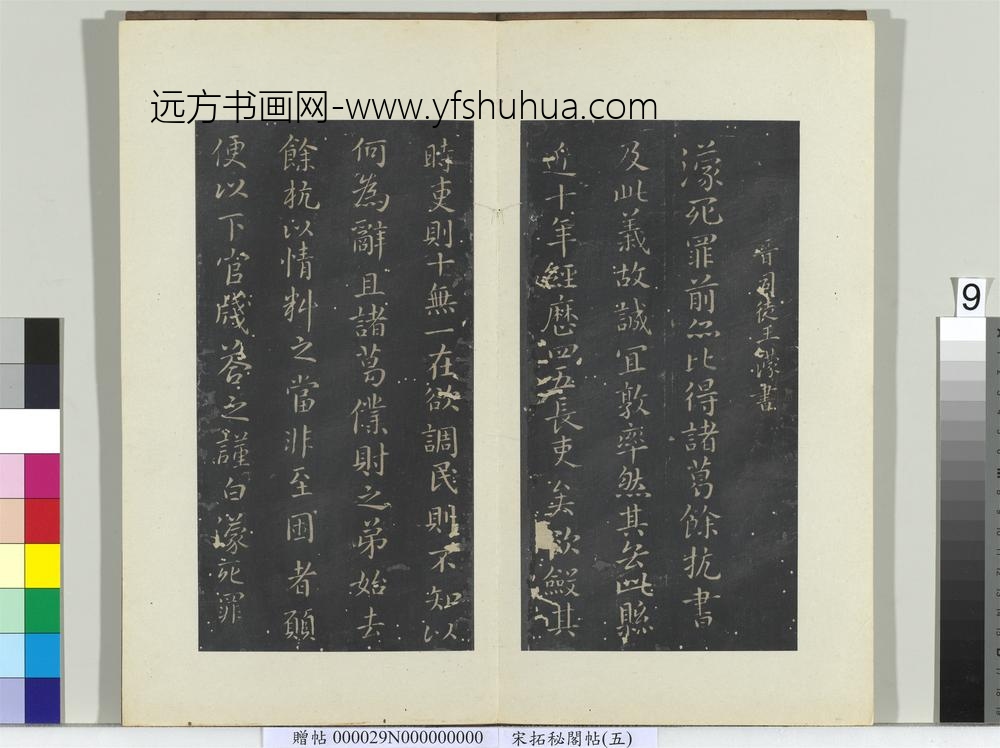 远方书画网-www.yfshuhua.com
晉司徒王濛書
濛死罪前無比得諸葛餘杭書
及此義故誠宜敦率然其去此縣
近十年經歷四五長吏矣欲斂其
時吏則十無一在欲調民則不知以
何為辭且諸葛僕財之弟始去
餘杭以情料之當非至困者願
便以下官牋答之謹白濛死罪
9
贈帖 000029N000000000 宋拓秘閣帖(五)